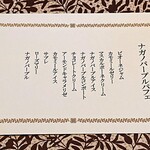 ナガノパープルパフェ
ピオーネジャム
カモミールゼリー
マスカルポーネクリーム
ナガノパープル
ナガノパープルコンポート
アーモンドキャラメリゼ
チョコレートクリーム
カモミールアイス
サブレ
ローズマリー
ナガノパープル